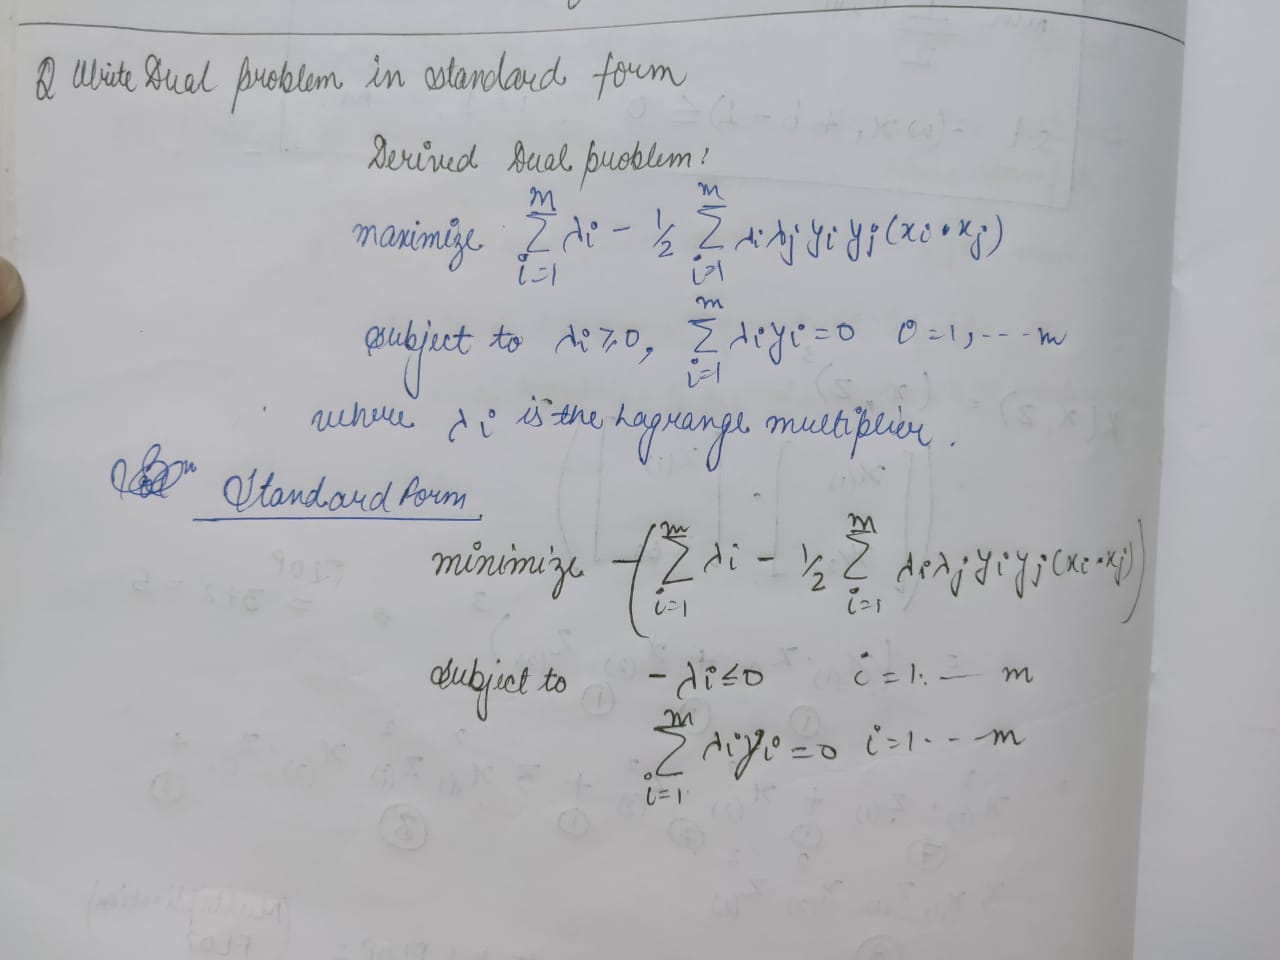 Q Write Dual problem in standard form
Derived Dual problem:
maximize \sum_{i=1}^{m} λi - 1/2 \sum_{i=1}^{m} λiλj yi yj (xi • xj)
subject to λi ≥ 0, \sum_{i=1}^{m} λi yi = 0 i = 1, --- m
where λi is the Lagrange multiplier.
Standard Form
minimize -(\sum_{i=1}^{m} λi - 1/2 \sum_{i=1}^{m} λiλj yi yj (xi • xj))
subject to - λi ≤ 0 i = 1. — m
\sum_{i=1}^{m} λi yi = 0 i = 1 . - - m